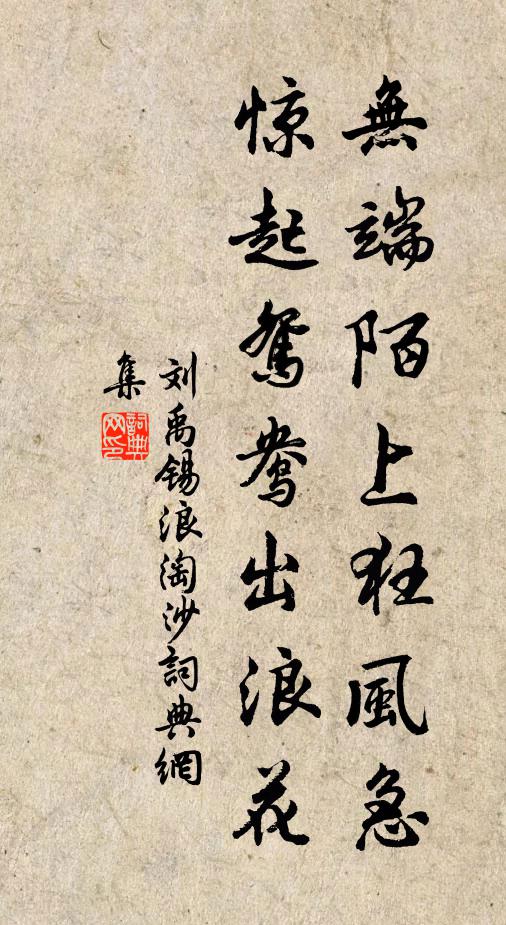 無端陌上狂風急
惊起鴛鴦出浪花
刘禹锡浪淘沙詞典網
集
詞典網印